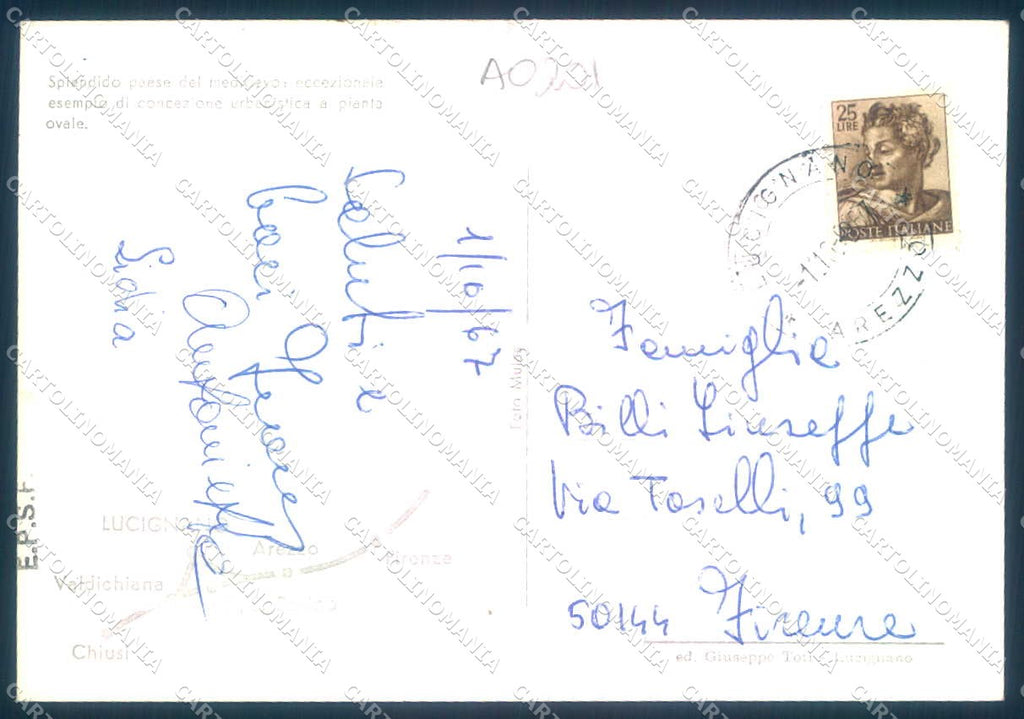 Splendido paese del medioevo: eccezionale
esempio di concezione urbanistica a pianta
ovale.
A0221
25
LIRE
POSTE ITALIANE
LUCIGNANO
AREZZO
1/10/67
Saluti e
baci
Lidia
Foto Mujos
Famiglia
Billi Giuseppe
Via Toselli, 99
50144 Firenze
E.P.S.F
LUCIGNANO
Arezzo
Firenze
Valdichiana
Chiusi
ed. Giuseppe Toti - Lucignano
CARTOLINOMANIA